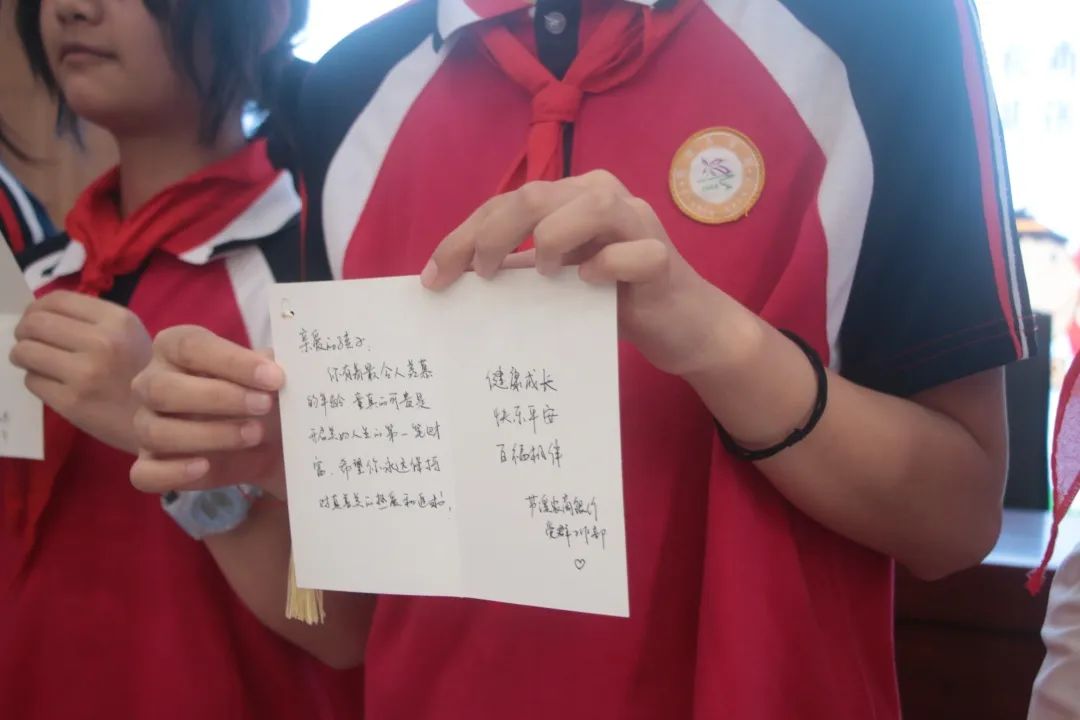 亲爱的孩子：
你有着最令人羡慕
的年龄 童真的可贵是
开启美的人生的第一笔财
富，希望你永远保持
对真善美的热爱和追求！
健康成长
快乐平安
百福相伴
农商银行
党群工作部